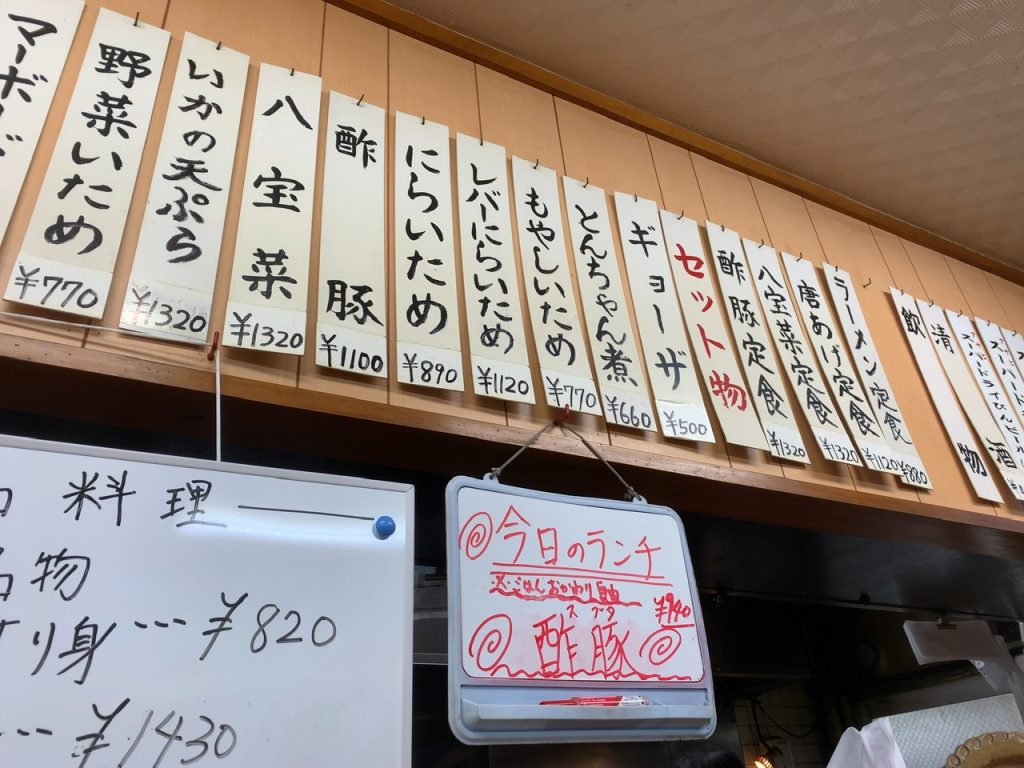 マーボード
野菜いため
¥770
いかの天ぷら
¥1320
八宝菜
¥1320
酢豚
¥1100
にらいため
¥890
レバーにらいため
¥1120
もやしいため
¥770
とんちゃん煮
¥660
ギョーザ
¥500
セット物
酢豚定食
¥1320
八宝菜定食
¥1320
唐あげ定食
¥1120
ラーメン定食
¥880
飲物
清酒
スーパードライびんビール
料理
名物
り身…¥820
…¥1430
今日のランチ
ごはんおかわり自由
¥940
スブタ
酢豚